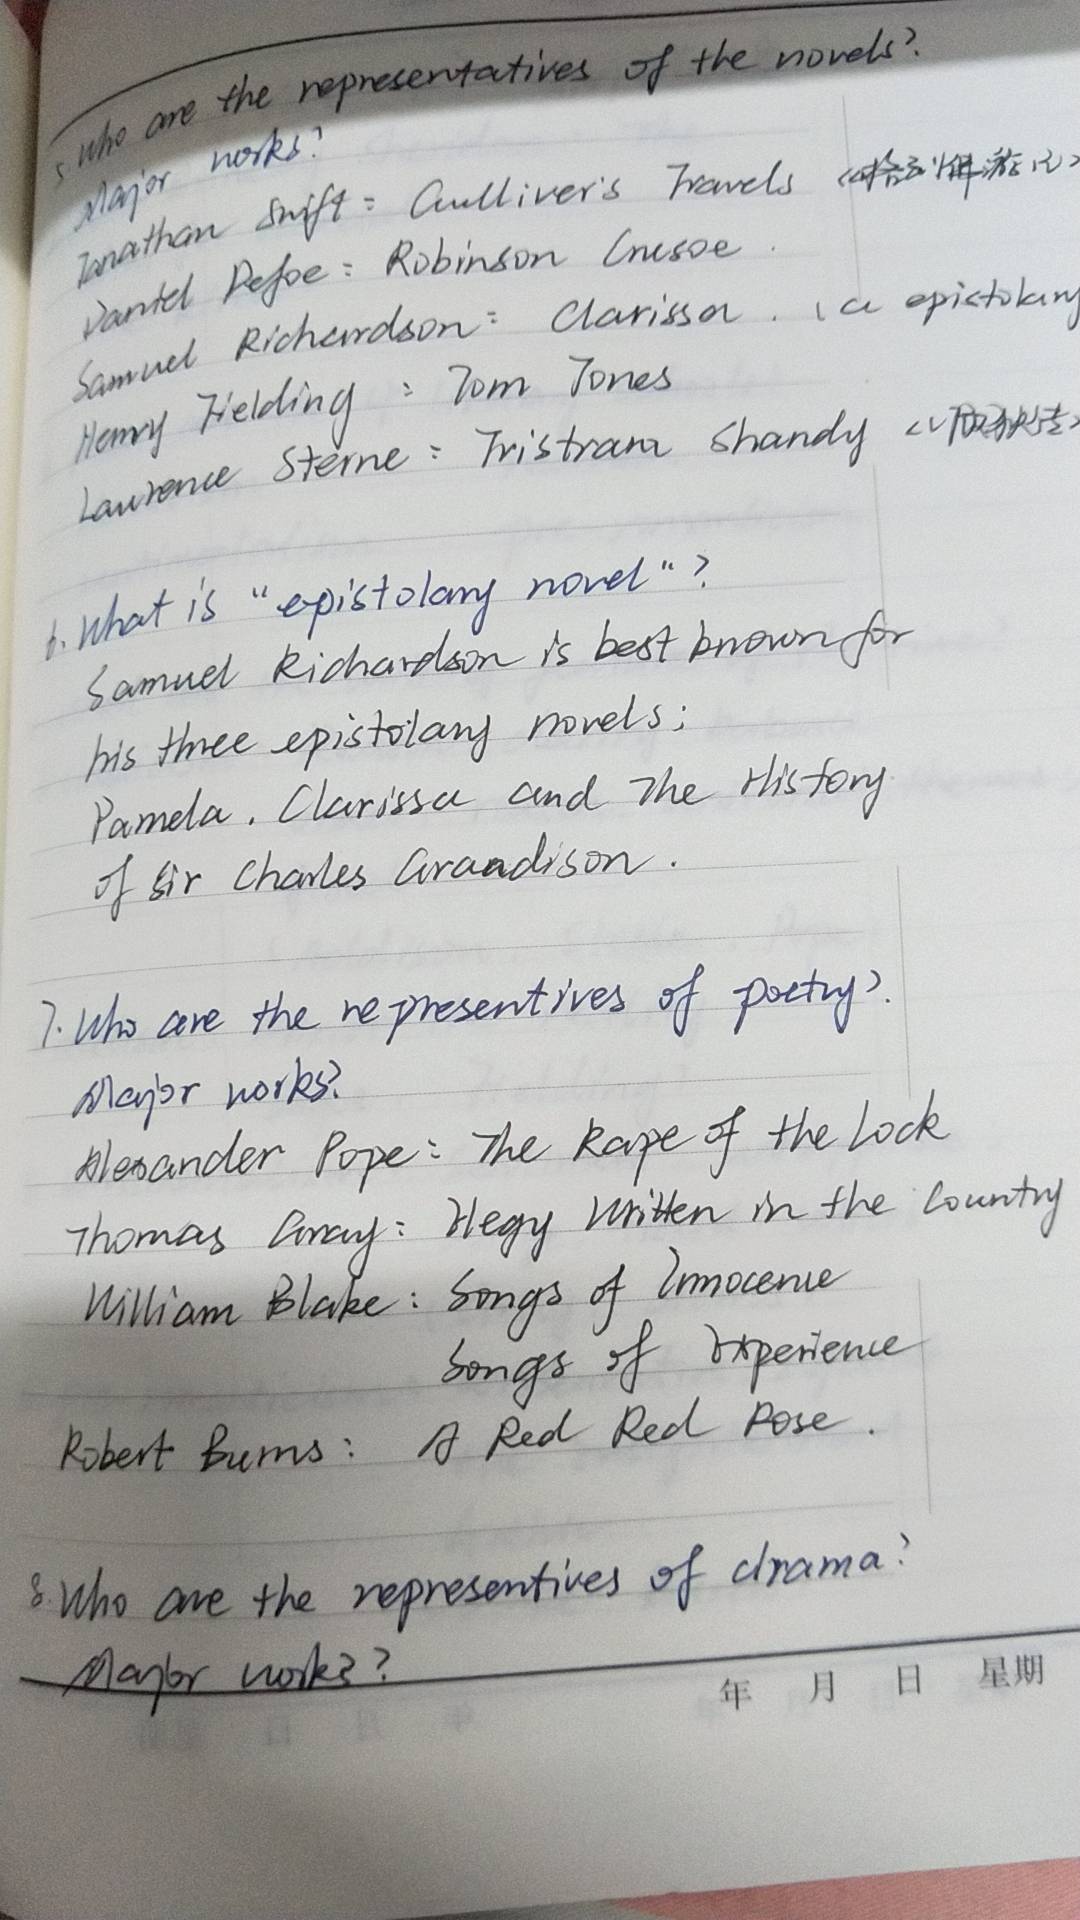 5. Who are the representatives of the novels?
Major works?
Jonathan Swift: Gulliver's Travels 《格列佛游记》
Daniel Defoe: Robinson Crusoe.
Samuel Richardson: Clarissa. (a epistolary
Henry Fielding: Tom Jones
Laurence Sterne: Tristram Shandy 《项狄传》
6. What is "epistolary novel"?
Samuel Richardson is best known for
his three epistolary novels;
Pamela, Clarissa and The History
of Sir Charles Grandison.
7. Who are the representives of poetry?
Major works?
Alexander Pope: The Rape of the Lock
Thomas Gray: Elegy Written in the Country
William Blake: Songs of Innocence
Songs of Experience
Robert Burns: A Red Red Rose.
8. Who are the representives of drama?
Major works?
年 月 日 星期